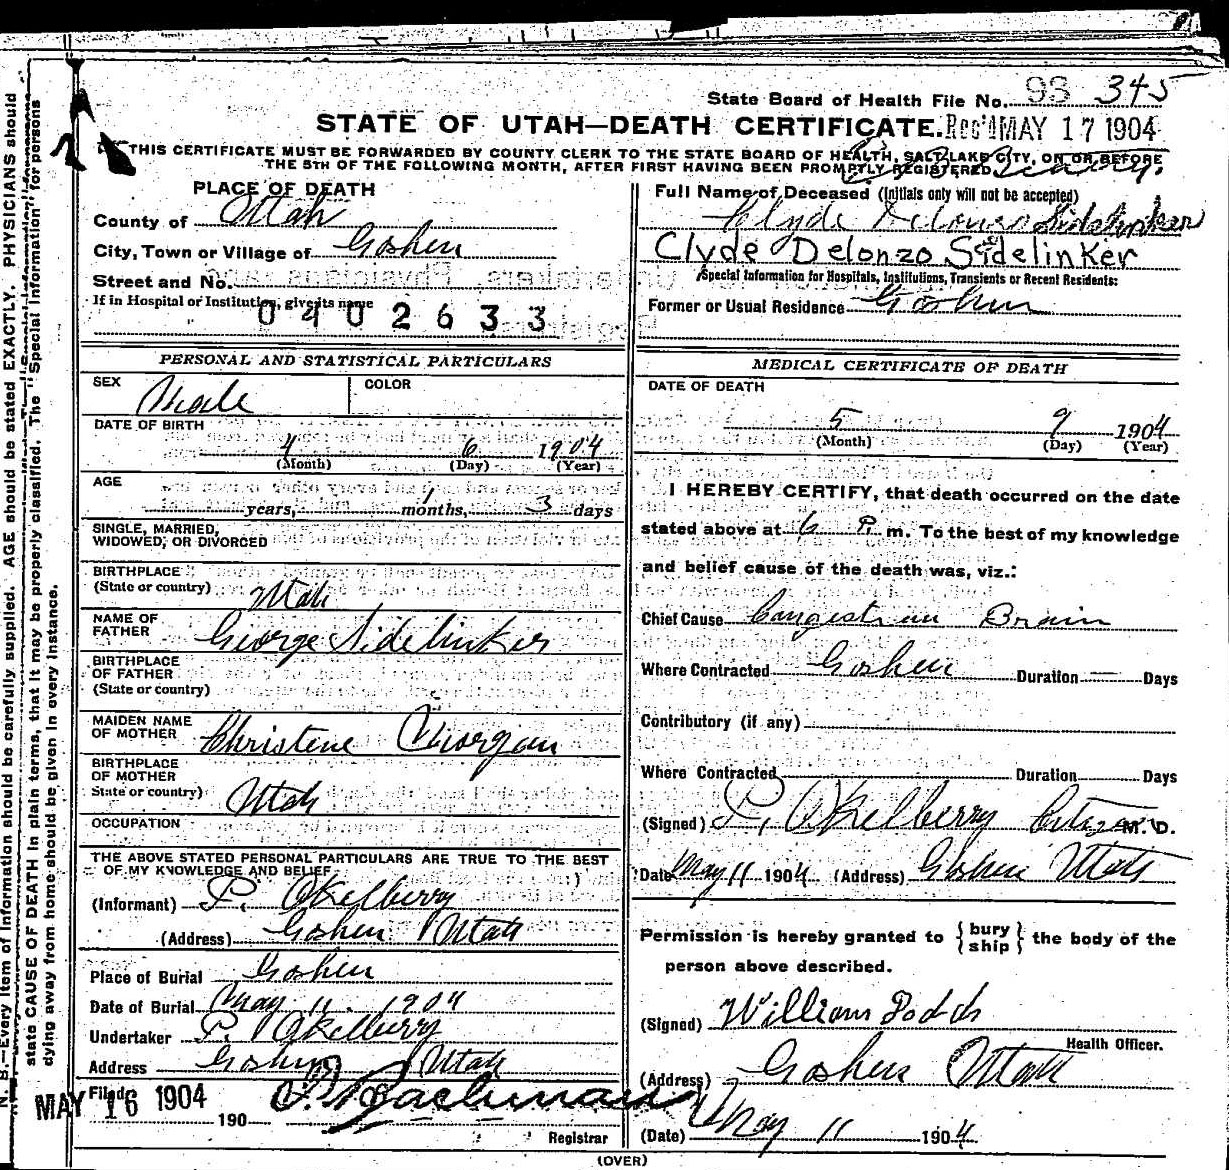 State Board of Health File No. 93 345
STATE OF UTAH—DEATH CERTIFICATE. Rec'd MAY 17 1904
THIS CERTIFICATE MUST BE FORWARDED BY COUNTY CLERK TO THE STATE BOARD OF HEALTH, SALT LAKE CITY, ON OR BEFORE
THE 5TH OF THE FOLLOWING MONTH, AFTER FIRST HAVING BEEN PROMPTLY REGISTERED
PLACE OF DEATH
County of Utah
City, Town or Village of Goshen
Street and No.
If in Hospital or Institution, give its name
0402633
Full Name of Deceased (Initials only will not be accepted)
Clyde Delonzo Sidelinker
Clyde Delonzo Sidelinker
Special Information for Hospitals, Institutions, Transients or Recent Residents:
Former or Usual Residence Goshen
PERSONAL AND STATISTICAL PARTICULARS
SEX Male COLOR
DATE OF BIRTH
4 6 1904
(Month) (Day) (Year)
AGE
years, 1 months, 3 days
SINGLE, MARRIED,
WIDOWED, OR DIVORCED
BIRTHPLACE
(State or country) Utah
NAME OF
FATHER George Sidelinker
BIRTHPLACE
OF FATHER
(State or country)
MAIDEN NAME
OF MOTHER Christene Morgan
BIRTHPLACE
OF MOTHER
State or country) Utah
OCCUPATION
THE ABOVE STATED PERSONAL PARTICULARS ARE TRUE TO THE BEST
OF MY KNOWLEDGE AND BELIEF
(Informant) P. Okelberry
(Address) Goshen Utah
Place of Burial Goshen
Date of Burial May 11 1904
Undertaker P. Okelberry
Address Goshen Utah
Filed MAY 16 1904
190
Registrar
MEDICAL CERTIFICATE OF DEATH
DATE OF DEATH
5 9 1904
(Month) (Day) (Year)
I HEREBY CERTIFY, that death occurred on the date
stated above at 6 P. m. To the best of my knowledge
and belief cause of the death was, viz.:
Chief Cause Congestion Brain
Where Contracted Goshen Duration Days
Contributory (if any)
Where Contracted Duration Days
(Signed) P. Okelberry Citizen M. D.
Date May 11 1904 (Address) Goshen Utah
Permission is hereby granted to { bury ship } the body of the
person above described.
(Signed) William Dodds
Health Officer.
(Address) Goshen Utah
(Date) May 11 1904
(OVER)
N. B.—Every item of information should be carefully supplied. AGE should be stated EXACTLY. PHYSICIANS should
state CAUSE OF DEATH in plain terms, that it may be properly classified. The "Special Information" for persons
dying away from home should be given in every instance.